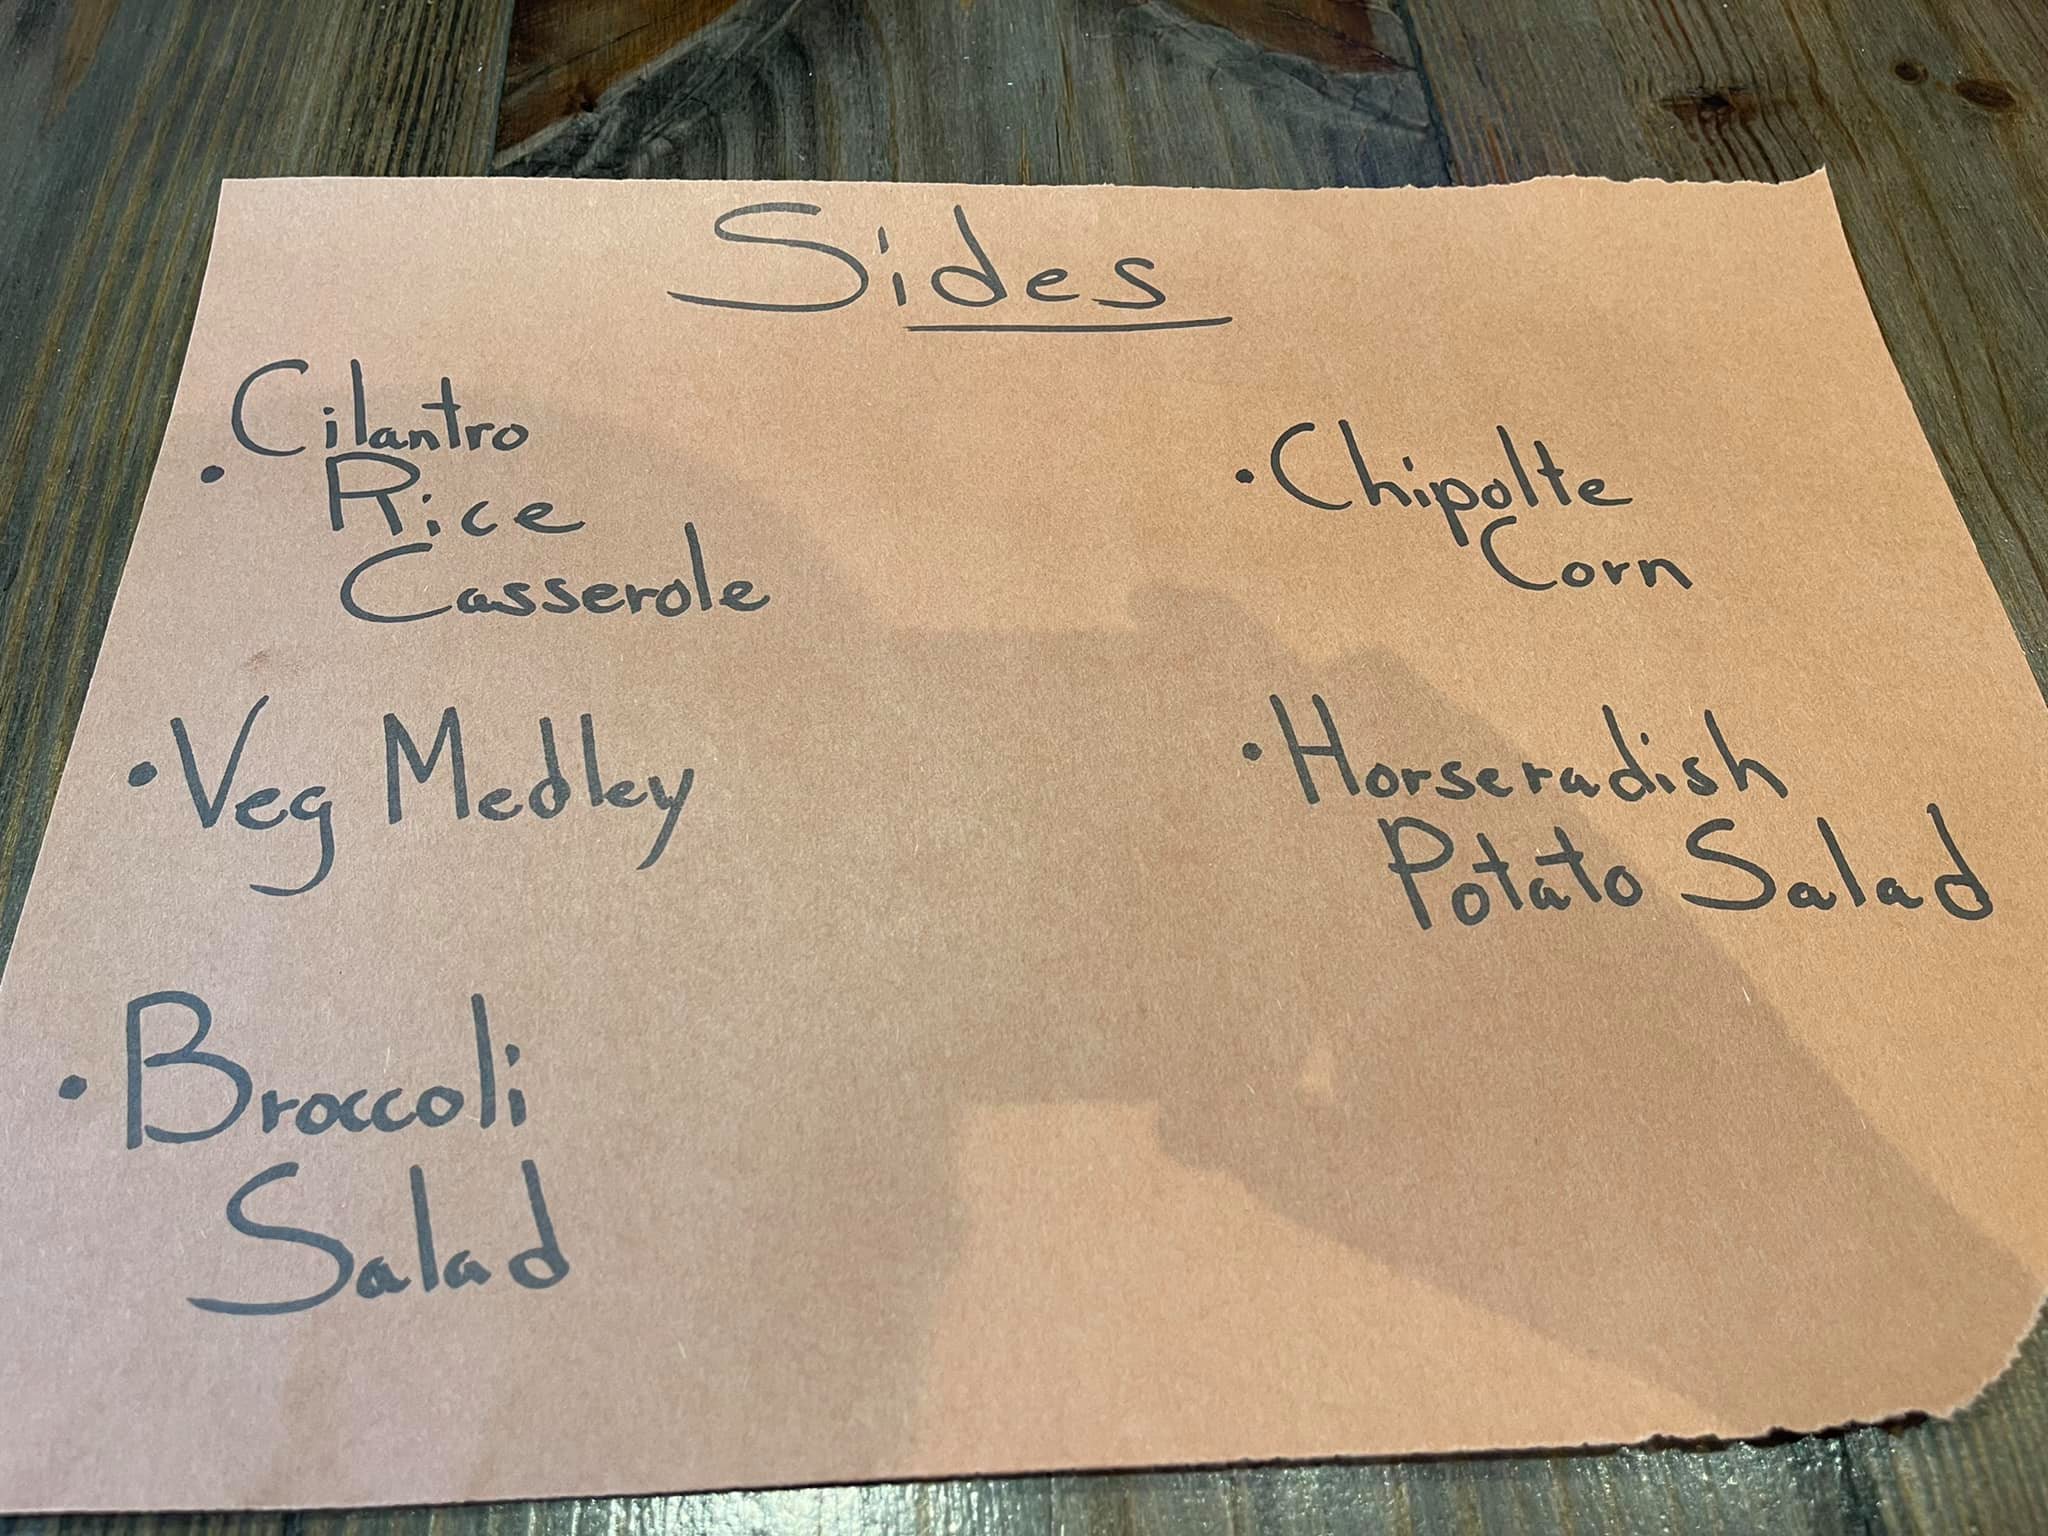 Sides
Cilantro
• Rice
Casserole
• Veg Medley
• Broccoli
Salad
• Chipolte
Corn
• Horseradish
Potato Salad